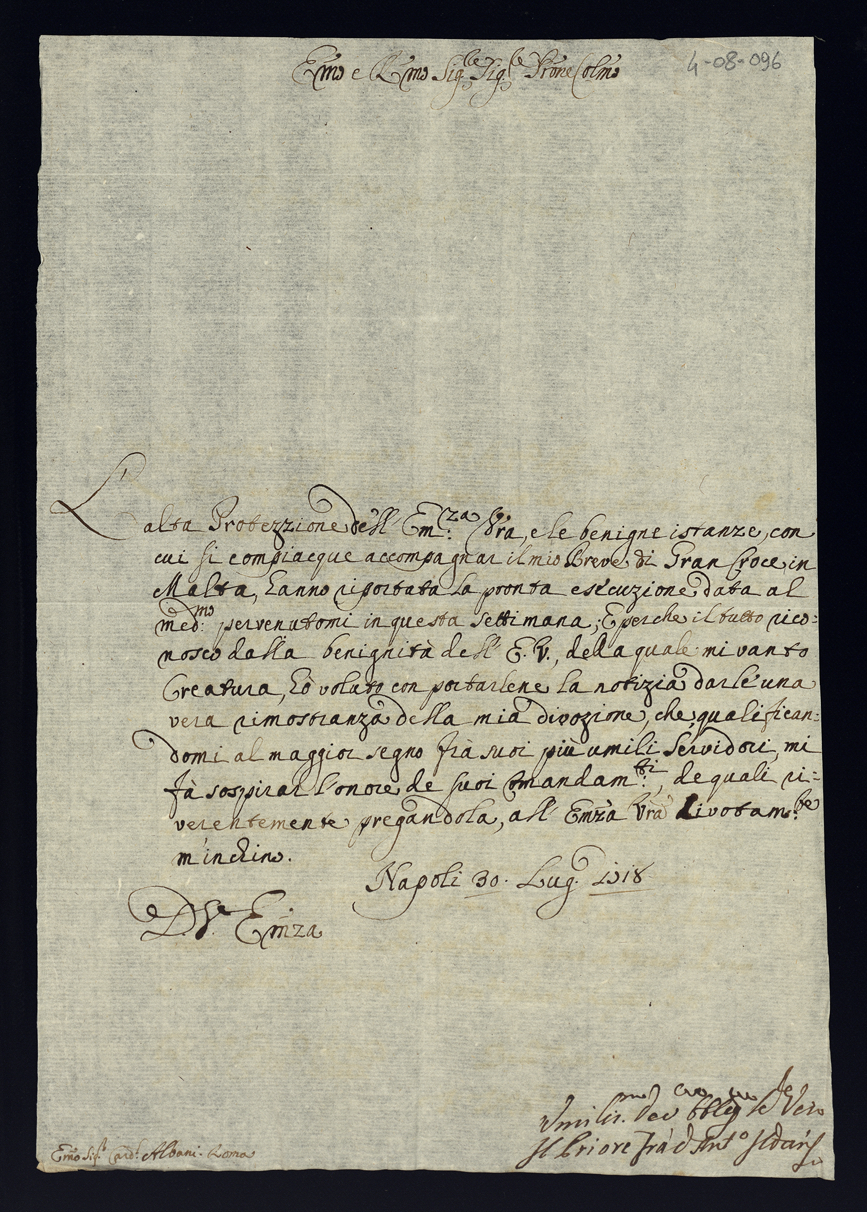 Emo e Rmo Sig.re Sig.re Prone Colmo
4-08-096
L'alta Protezzione dell'Em.za Vra, e le benigne istanze, con
cui si compiacque accompagnar il mio Breve di Gran Croce in
Malta, hanno riportata la pronta esecuzione data al
med.mo pervenutomi in questa settimana; E perche il tutto rico:
nosco dalla benignità dell'E.V., della quale mi vanto
Creatura, hò voluto con portarlene la notizia darle una
vera rimostranza della mia divozione, che qualifican:
domi al maggior segno frà suoi più umili Servidori, mi
fà sospirar l'onore de suoi Comandam.ti, de quali ri:
verentemente pregandola, all'Emza Vra divotam.te
m'inchino.
Napoli 30. Lug. 1718
D. V.a Emza
Umiliss.mo Dev Obblig Se Vero
Il Priore Frà d'Ant.o
Emo Sig.r Card.l Albani. Roma